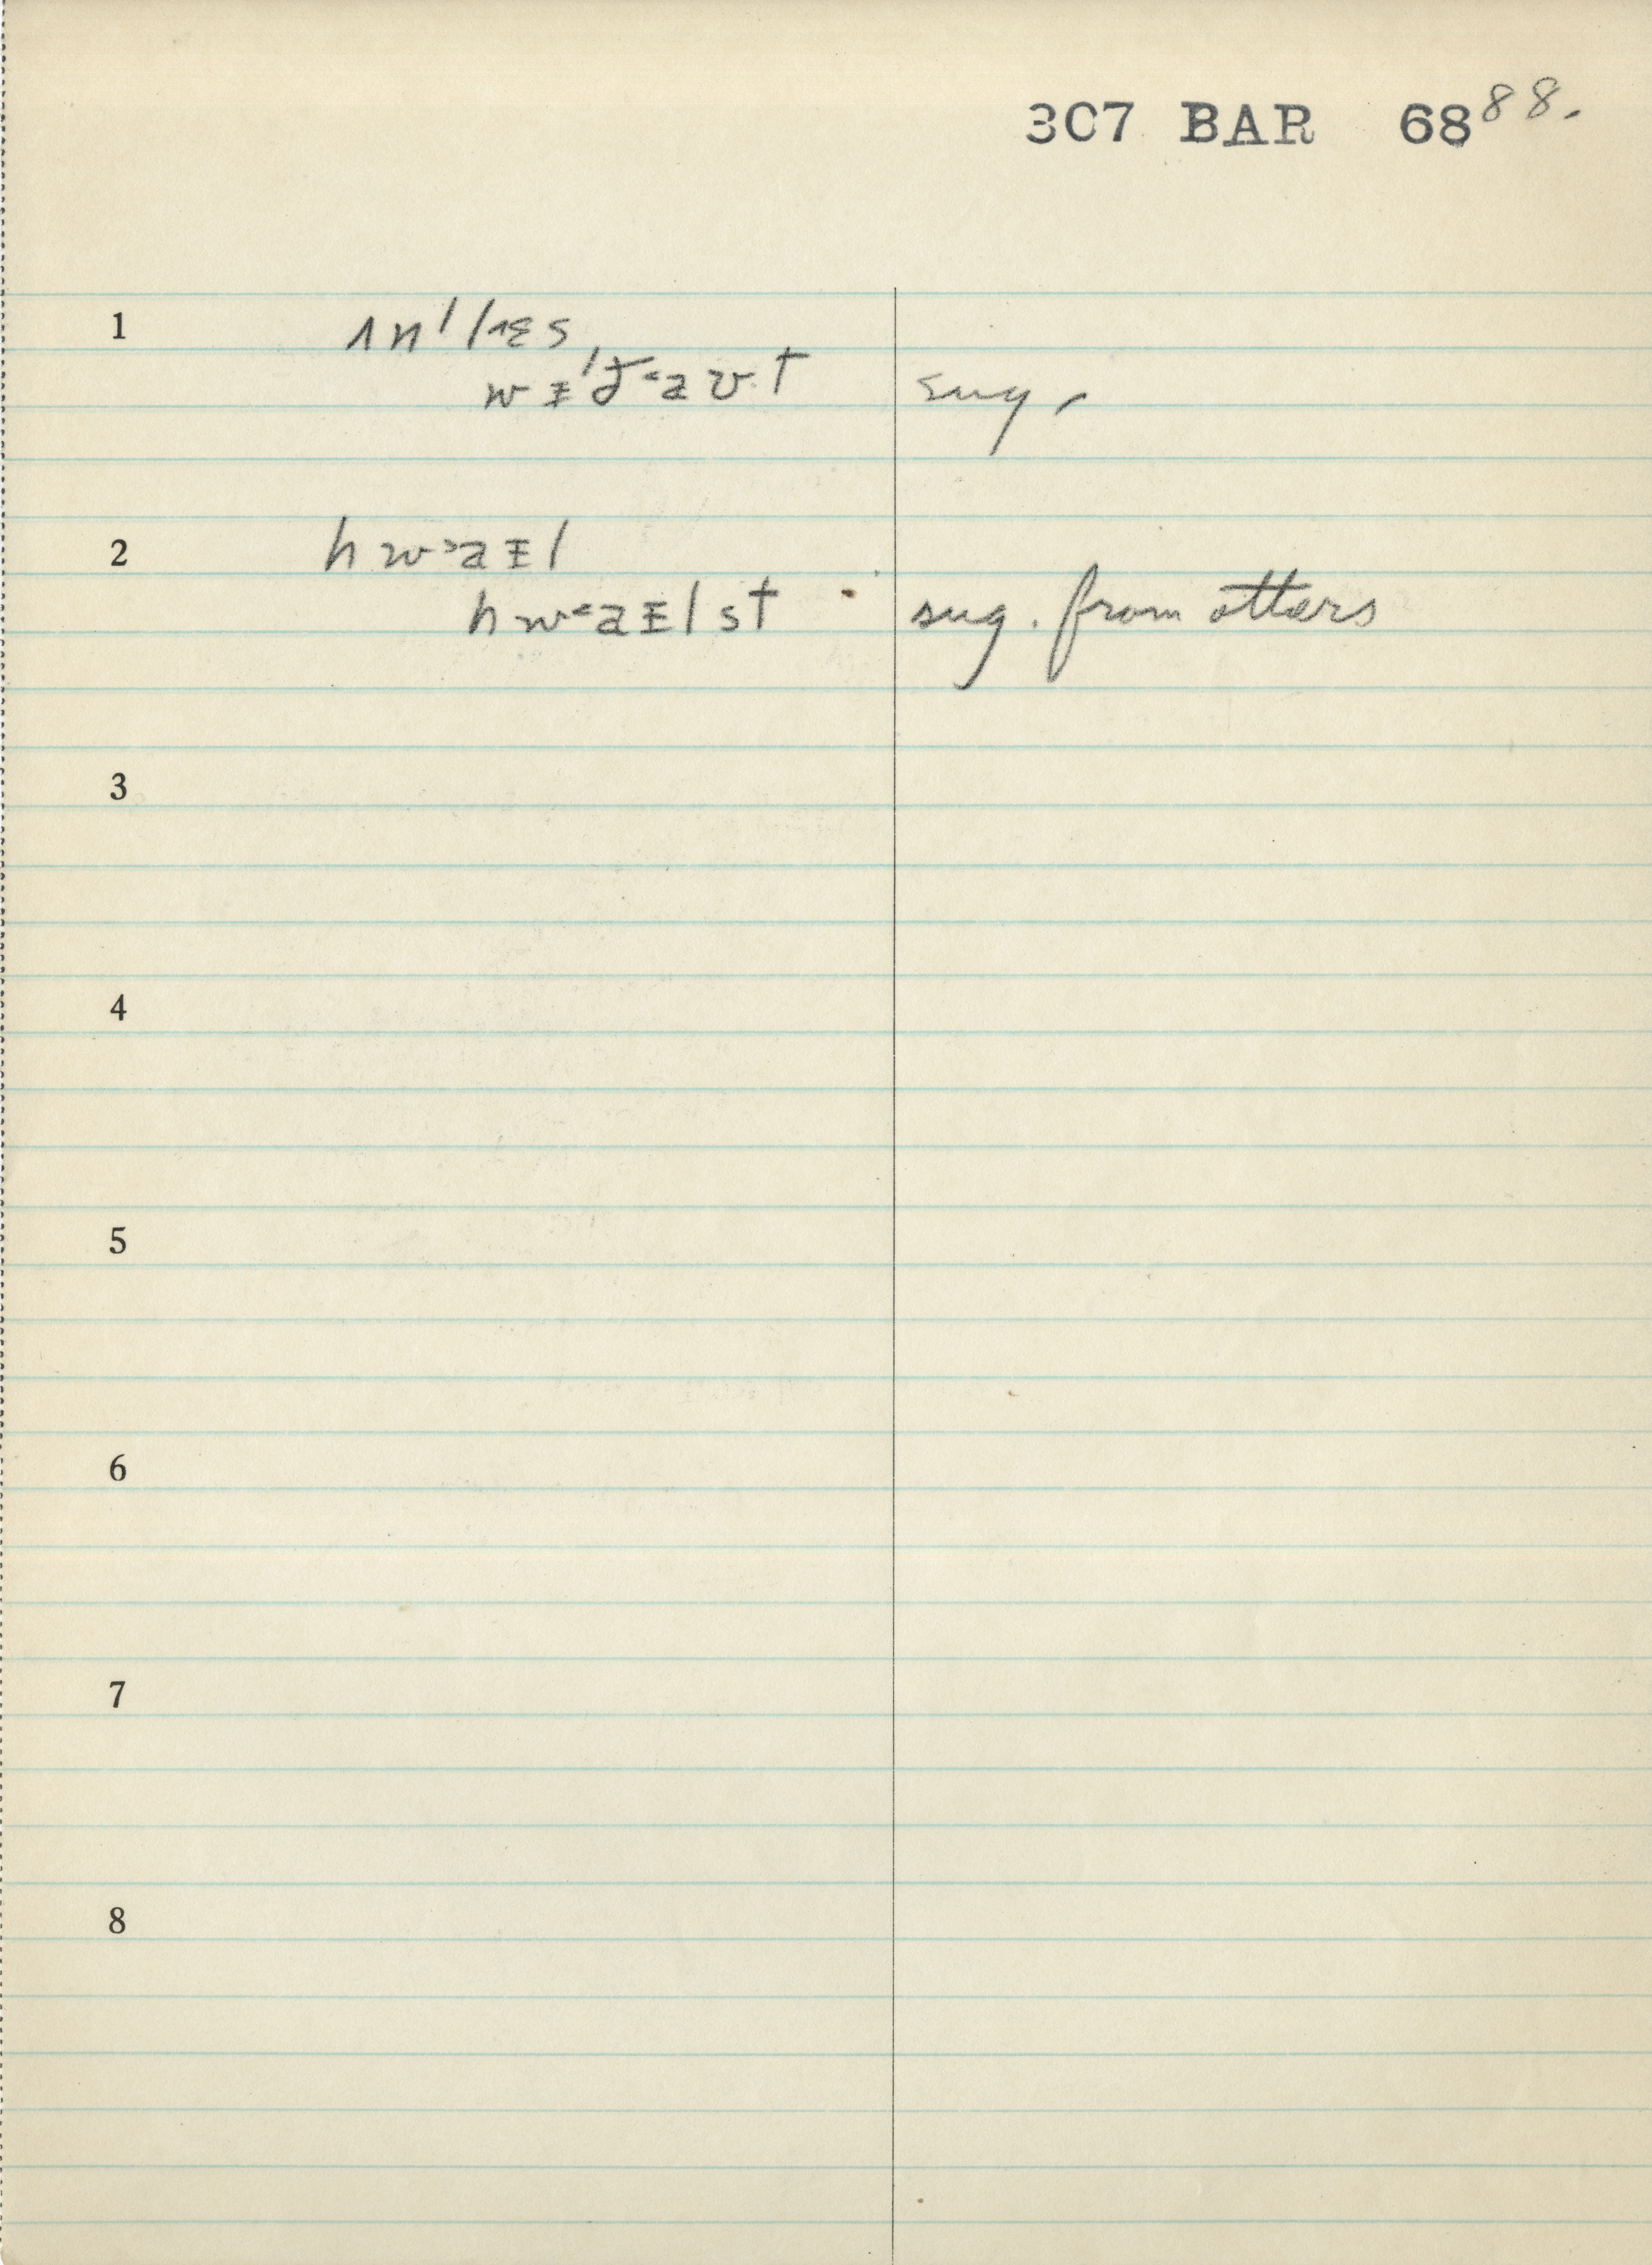 3C7 BAR 68 88.
1 ʌn'lɛs
wɪ'ð<aʊt sug.
2 hw>aɪl
hw<aɪlst sug. from others
3
4
5
6
7
8